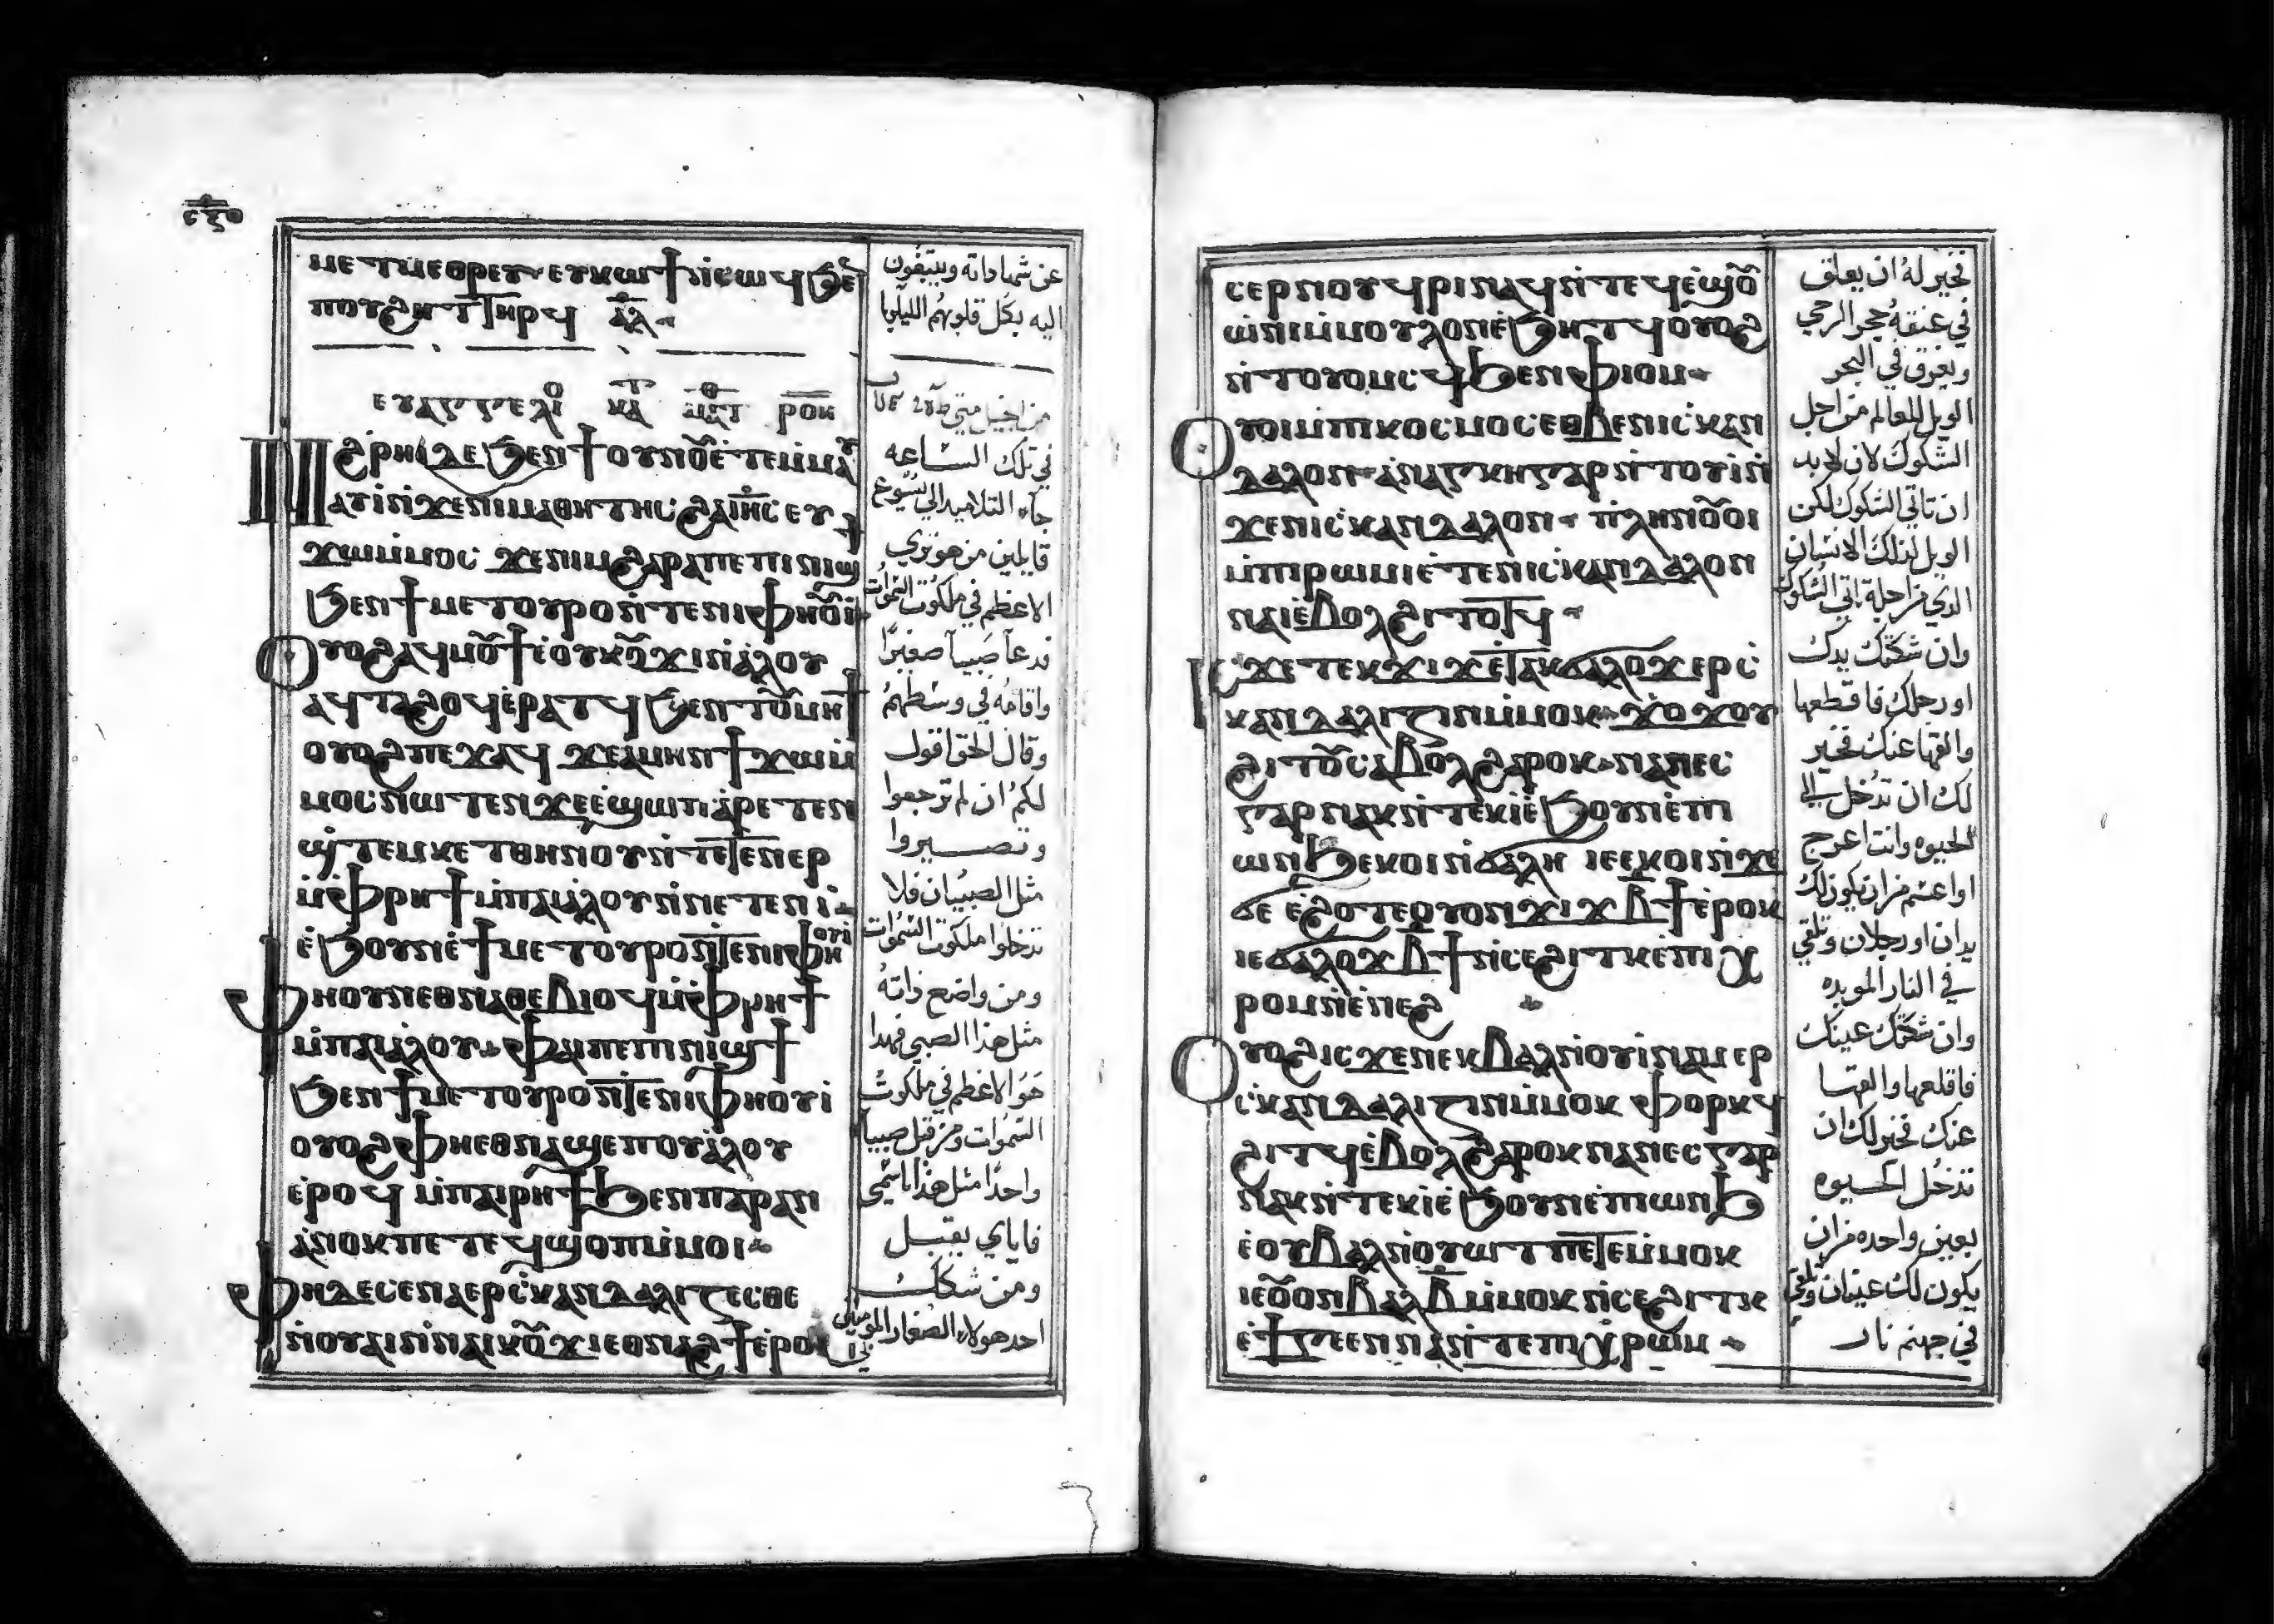 ⲙⲉⲧⲙⲉⲑⲣⲉⲩ ⲉⲩⲕⲱϯ ⲛ̀ⲥⲱϥ ϧⲉⲛ
ⲡⲟⲩϩⲏⲧ ⲧⲏⲣϥ ⲁ̅ⲗ̅
ⲉⲩⲁⲅⲅⲉⲗⲓⲟ ⲕⲁⲧ ⲙⲁⲧⲑ ⲣ̅ⲟ̅ⲏ̅
ⲛ̀ϩⲣⲏⲓ ⲇⲉ ϧⲉⲛ ϯⲟⲩⲛⲟⲩ ⲉⲧⲉⲙ̀ⲙⲁⲩ
ⲁⲩⲓ̀ ⲛ̀ϫⲉ ⲛⲓⲙⲁⲑⲏⲧⲏⲥ ϩⲁ ⲓⲏ̅ⲥ̅ ⲉⲩ
ϫⲱ ⲙ̀ⲙⲟⲥ ϫⲉ ⲛⲓⲙ ϩⲁⲣⲁ ⲡⲉ ⲡⲓⲛⲓϣϯ
ϧⲉⲛ ϯⲙⲉⲧⲟⲩⲣⲟ ⲛ̀ⲧⲉ ⲛⲓⲫⲏⲟⲩⲓ̀
ⲟⲩⲟϩ ⲁϥⲙⲟⲩϯ ⲉ̀ⲟⲩⲕⲟⲩϫⲓ ⲛ̀ⲁ̀ⲗⲟⲩ
ⲁϥⲧⲁϩⲟϥ ⲉ̀ⲣⲁⲧϥ ϧⲉⲛ ⲧⲟⲩⲙⲏϯ
ⲟⲩⲟϩ ⲡⲉϫⲁϥ ϫⲉ ⲁⲙⲏⲛ ϯϫⲱ ⲙ̀
ⲙⲟⲥ ⲛⲱⲧⲉⲛ ϫⲉ ⲉ̀ϣⲱⲡ ⲁ̀ⲣⲉⲧⲉⲛ
ϣ̀ⲧⲉⲙⲕⲉⲧ ⲑⲏⲛⲟⲩ ⲛ̀ⲧⲉⲧⲉⲛⲉⲣ
ⲙ̀ⲫⲣⲏϯ ⲙ̀ⲡⲁⲓⲁ̀ⲗⲟⲩ ⲛ̀ⲛⲉⲧⲉⲛⲓ̀
ⲉ̀ϧⲟⲩⲛ ⲉ̀ϯⲙⲉⲧⲟⲩⲣⲟ ⲛ̀ⲧⲉ ⲛⲓⲫⲏⲟⲩⲓ
ⲫⲏ ⲟⲩⲛ ⲉⲑⲛⲁⲑⲉⲃⲓⲟϥ ⲙ̀ⲫⲣⲏϯ
ⲙ̀ⲡⲁⲓⲁ̀ⲗⲟⲩ ⲫⲁⲓ ⲡⲉ ⲡⲓⲛⲓϣϯ
ϧⲉⲛ ϯⲙⲉⲧⲟⲩⲣⲟ ⲛ̀ⲧⲉ ⲛⲓⲫⲏⲟⲩⲓ
ⲟⲩⲟϩ ⲫⲏ ⲉⲑⲛⲁϣⲉⲡ ⲟⲩⲁ̀ⲗⲟⲩ
ⲉ̀ⲣⲟϥ ⲙ̀ⲡⲁⲓⲣⲏϯ ϧⲉⲛ ⲡⲁⲣⲁⲛ
ⲁ̀ⲛⲟⲕ ⲡⲉⲧⲉϥϣⲟⲡ ⲙ̀ⲙⲟⲓ
ⲫⲏ ⲇⲉ ⲉⲥⲉⲛⲁⲉⲣⲥ̀ⲕⲁⲛⲇⲁⲗⲓⲍⲉⲥⲑⲉ
ⲛ̀ⲟⲩⲁⲓ ⲛ̀ⲛⲁⲓⲕⲟⲩϫⲓ ⲉⲑⲛⲁϩϯ ⲉ̀ⲣⲟⲓ
عن شهاداته ويبتغون
اليه بكل قلوبهم الليلويا
من انجيل متي
في تلك الساعه
جاء التلاميد الي يسوع
قايلين من هو تري
الاعظم في ملكوت السموات
فدعا صبيا صغيرا
واقامه في وسطهم
وقال الحق اقول
لكم ان لم ترجعوا
وتصيروا
مثل الصبيان فلا
تدخلوا ملكوت السموات
ومن واضع ذاته
مثل هذا الصبي فهدا
هو الاعظم في ملكوت
السموات ومن قبل صبيا
واحدا مثل هذا باسمي
فاياي يقبل
ومن شكك
احد هولاء الصغار المومنين بي
ⲥⲉⲣⲛⲟϥⲣⲓ ⲛⲁϥ ⲛ̀ⲧⲉϥⲉ̀ϣⲟ̀
ⲱ̀ⲛⲓ ⲙ̀ⲙⲟⲩⲗⲟⲛ ⲉ̀ϧⲏⲧϥ ⲟⲩⲟϩ
ⲛ̀ⲧⲟⲩⲟⲙⲥϥ ϧⲉⲛ ⲫⲓⲟⲙ
ⲟⲩⲟⲓ ⲙ̀ⲡⲓⲕⲟⲥⲙⲟⲥ ⲉⲑⲃⲉ ⲛⲓⲥ̀ⲕⲁⲛ
ⲇⲁⲗⲟⲛ ⲁ̀ⲛⲁⲅⲕⲏ ⲅⲁⲣ ⲛ̀ⲧⲟⲩⲓ̀ ⲛ̀
ϫⲉ ⲛⲓⲥ̀ⲕⲁⲛⲇⲁⲗⲟⲛ ⲡⲗⲏⲛ ⲟⲩⲟⲓ
ⲙ̀ⲡⲓⲣⲱⲙⲓ ⲉ̀ⲧⲉ ⲛⲓⲥ̀ⲕⲁⲛⲇⲁⲗⲟⲛ
ⲛⲁⲓ ⲉ̀ⲃⲟⲗ ϩⲓⲧⲟⲧϥ
ⲓⲥϫⲉ ⲧⲉⲕϫⲓϫ ⲓⲉ ⲧⲁⲕϭⲁⲗⲟϫ ⲉⲣⲥ̀
ⲕⲁⲛⲇⲁⲗⲓⲍⲓⲛ ⲙ̀ⲙⲟⲕ ϫⲟϫⲟⲩ
ϩⲓⲧⲟⲩ ⲥⲁⲃⲟⲗ ϩⲁⲣⲟⲕ ⲛⲁⲛⲉⲥ
ⲅⲁⲣ ⲛⲁⲕ ⲛ̀ⲧⲉⲕⲓ̀ ⲉ̀ϧⲟⲩⲛ ⲉ̀ⲡⲓ
ⲱⲛϧ ⲉⲕⲟⲓ ⲛ̀ϭⲁⲗⲏ ⲓⲉ ⲉⲕⲟⲓ ⲛ̀ϫⲁ
ϭⲉ ⲉ̀ϩⲟⲧⲉ ⲟⲩⲟⲛ ϫⲓϫ ⲃ̅ϯ ⲉ̀ⲣⲟⲕ
ⲓⲉ ϭⲁⲗⲟϫ ⲃ̅ϯ ⲛ̀ⲥⲉϩⲓⲧⲕ ⲉ̀ⲡⲓⲭ̀
ⲣⲱⲙ ⲛ̀ⲉ̀ⲛⲉϩ
ⲟⲩⲟϩ ⲓⲥϫⲉ ⲡⲉⲕⲃⲁⲗ ⲛ̀ⲟⲩⲓ̀ⲛⲁⲙ ⲉⲣ
ⲥ̀ⲕⲁⲛⲇⲁⲗⲓⲍⲓⲛ ⲙ̀ⲙⲟⲕ ⲫⲟⲣⲕϥ
ϩⲓⲧϥ ⲉ̀ⲃⲟⲗ ϩⲁⲣⲟⲕ ⲛⲁⲛⲉⲥ ⲅⲁⲣ
ⲛⲁⲕ ⲛ̀ⲧⲉⲕⲓ̀ ⲉ̀ϧⲟⲩⲛ ⲉ̀ⲡⲓⲱⲛϧ
ⲉ̀ⲟⲩⲃⲁⲗ ⲛ̀ⲟⲩⲱⲧ ⲡⲉⲧⲉⲙ̀ⲙⲟⲕ
ⲓⲉ ⲟⲩⲟⲛ ⲃⲁⲗ ⲃ̅ ⲙ̀ⲙⲟⲕ ⲛ̀ⲥⲉϩⲓⲧⲕ
ⲉ̀ϯⲅⲉⲉⲛⲛⲁ ⲛ̀ⲧⲉ ⲡⲓⲭ̀ⲣⲱⲙ
فخير له ان يعلق
في عنقه حجر الرحي
ويغرق في البحر
الويل للعالم من اجل
الشكوك لان لابد
ان تاتي الشكوك لكن
الويل لذلك الانسان
الدي من اجله تاتي الشكوك
وان شككتك يدك
او رجلك فاقطعها
والقها عنك فخير
لك ان تدخل الي
الحيوه وانت اعرج
او اعسم من ان يكون لك
يدان او رجلان وتلقي
في النار الموبده
وان شككتك عينك
فاقلعها والقها
عنك فخير لك ان
تدخل الحيوه
بعين واحده من ان
يكون لك عينان وتلقي
في جهنم نار